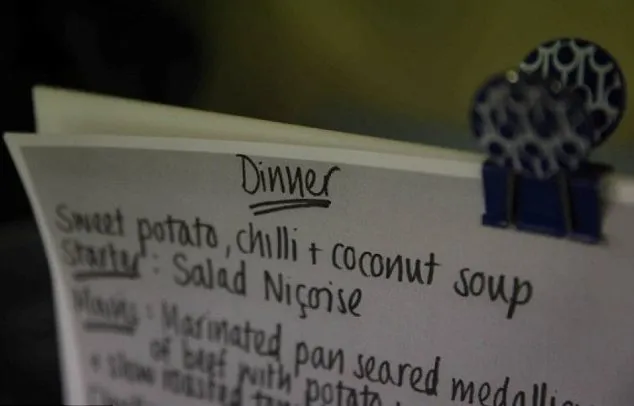 Dinner
Sweet potato, chilli + coconut soup
Starter : Salad Niçoise
Mains : Marinated pan seared
of beef with potato
+ slow roasted